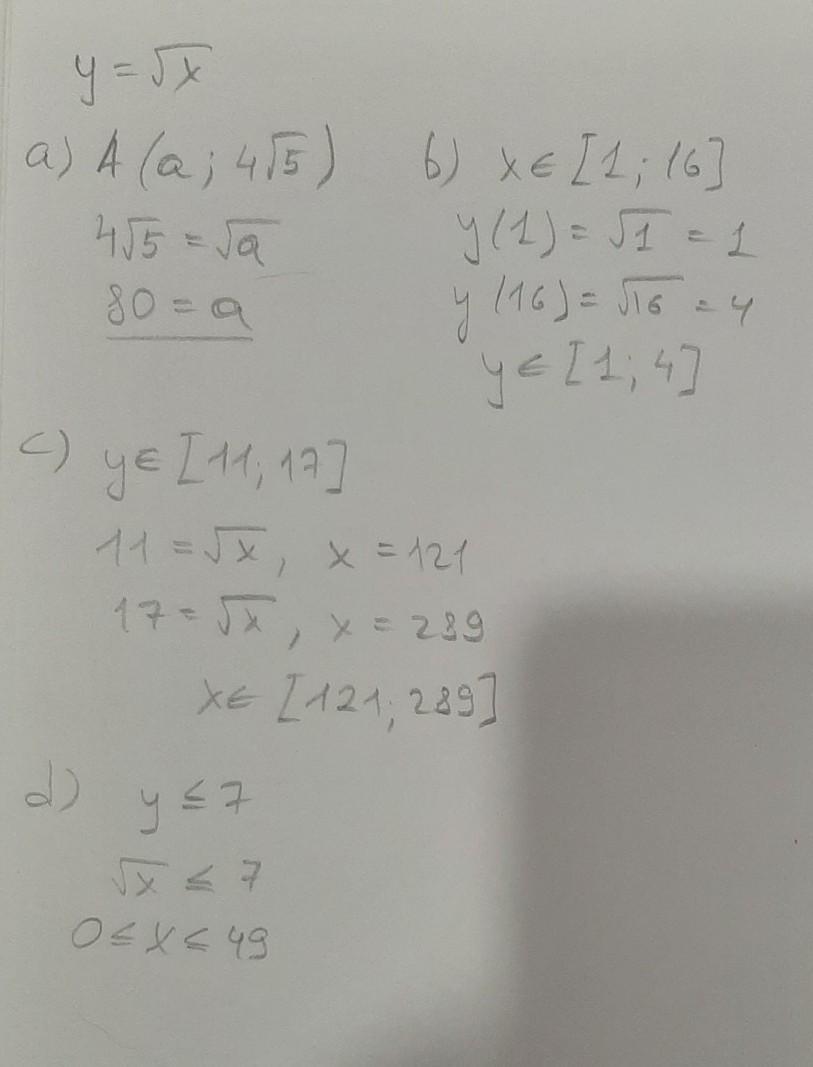 y = √x
a) A (a; 4√5)
4√5 = √a
80 = a
b) x ∈ [1; 16]
y(1) = √1 = 1
y(16) = √16 = 4
y ∈ [1; 4]
c) y ∈ [11; 17]
11 = √x, x = 121
17 = √x, x = 289
x ∈ [121; 289]
d) y ≤ 7
√x ≤ 7
0 ≤ x ≤ 49